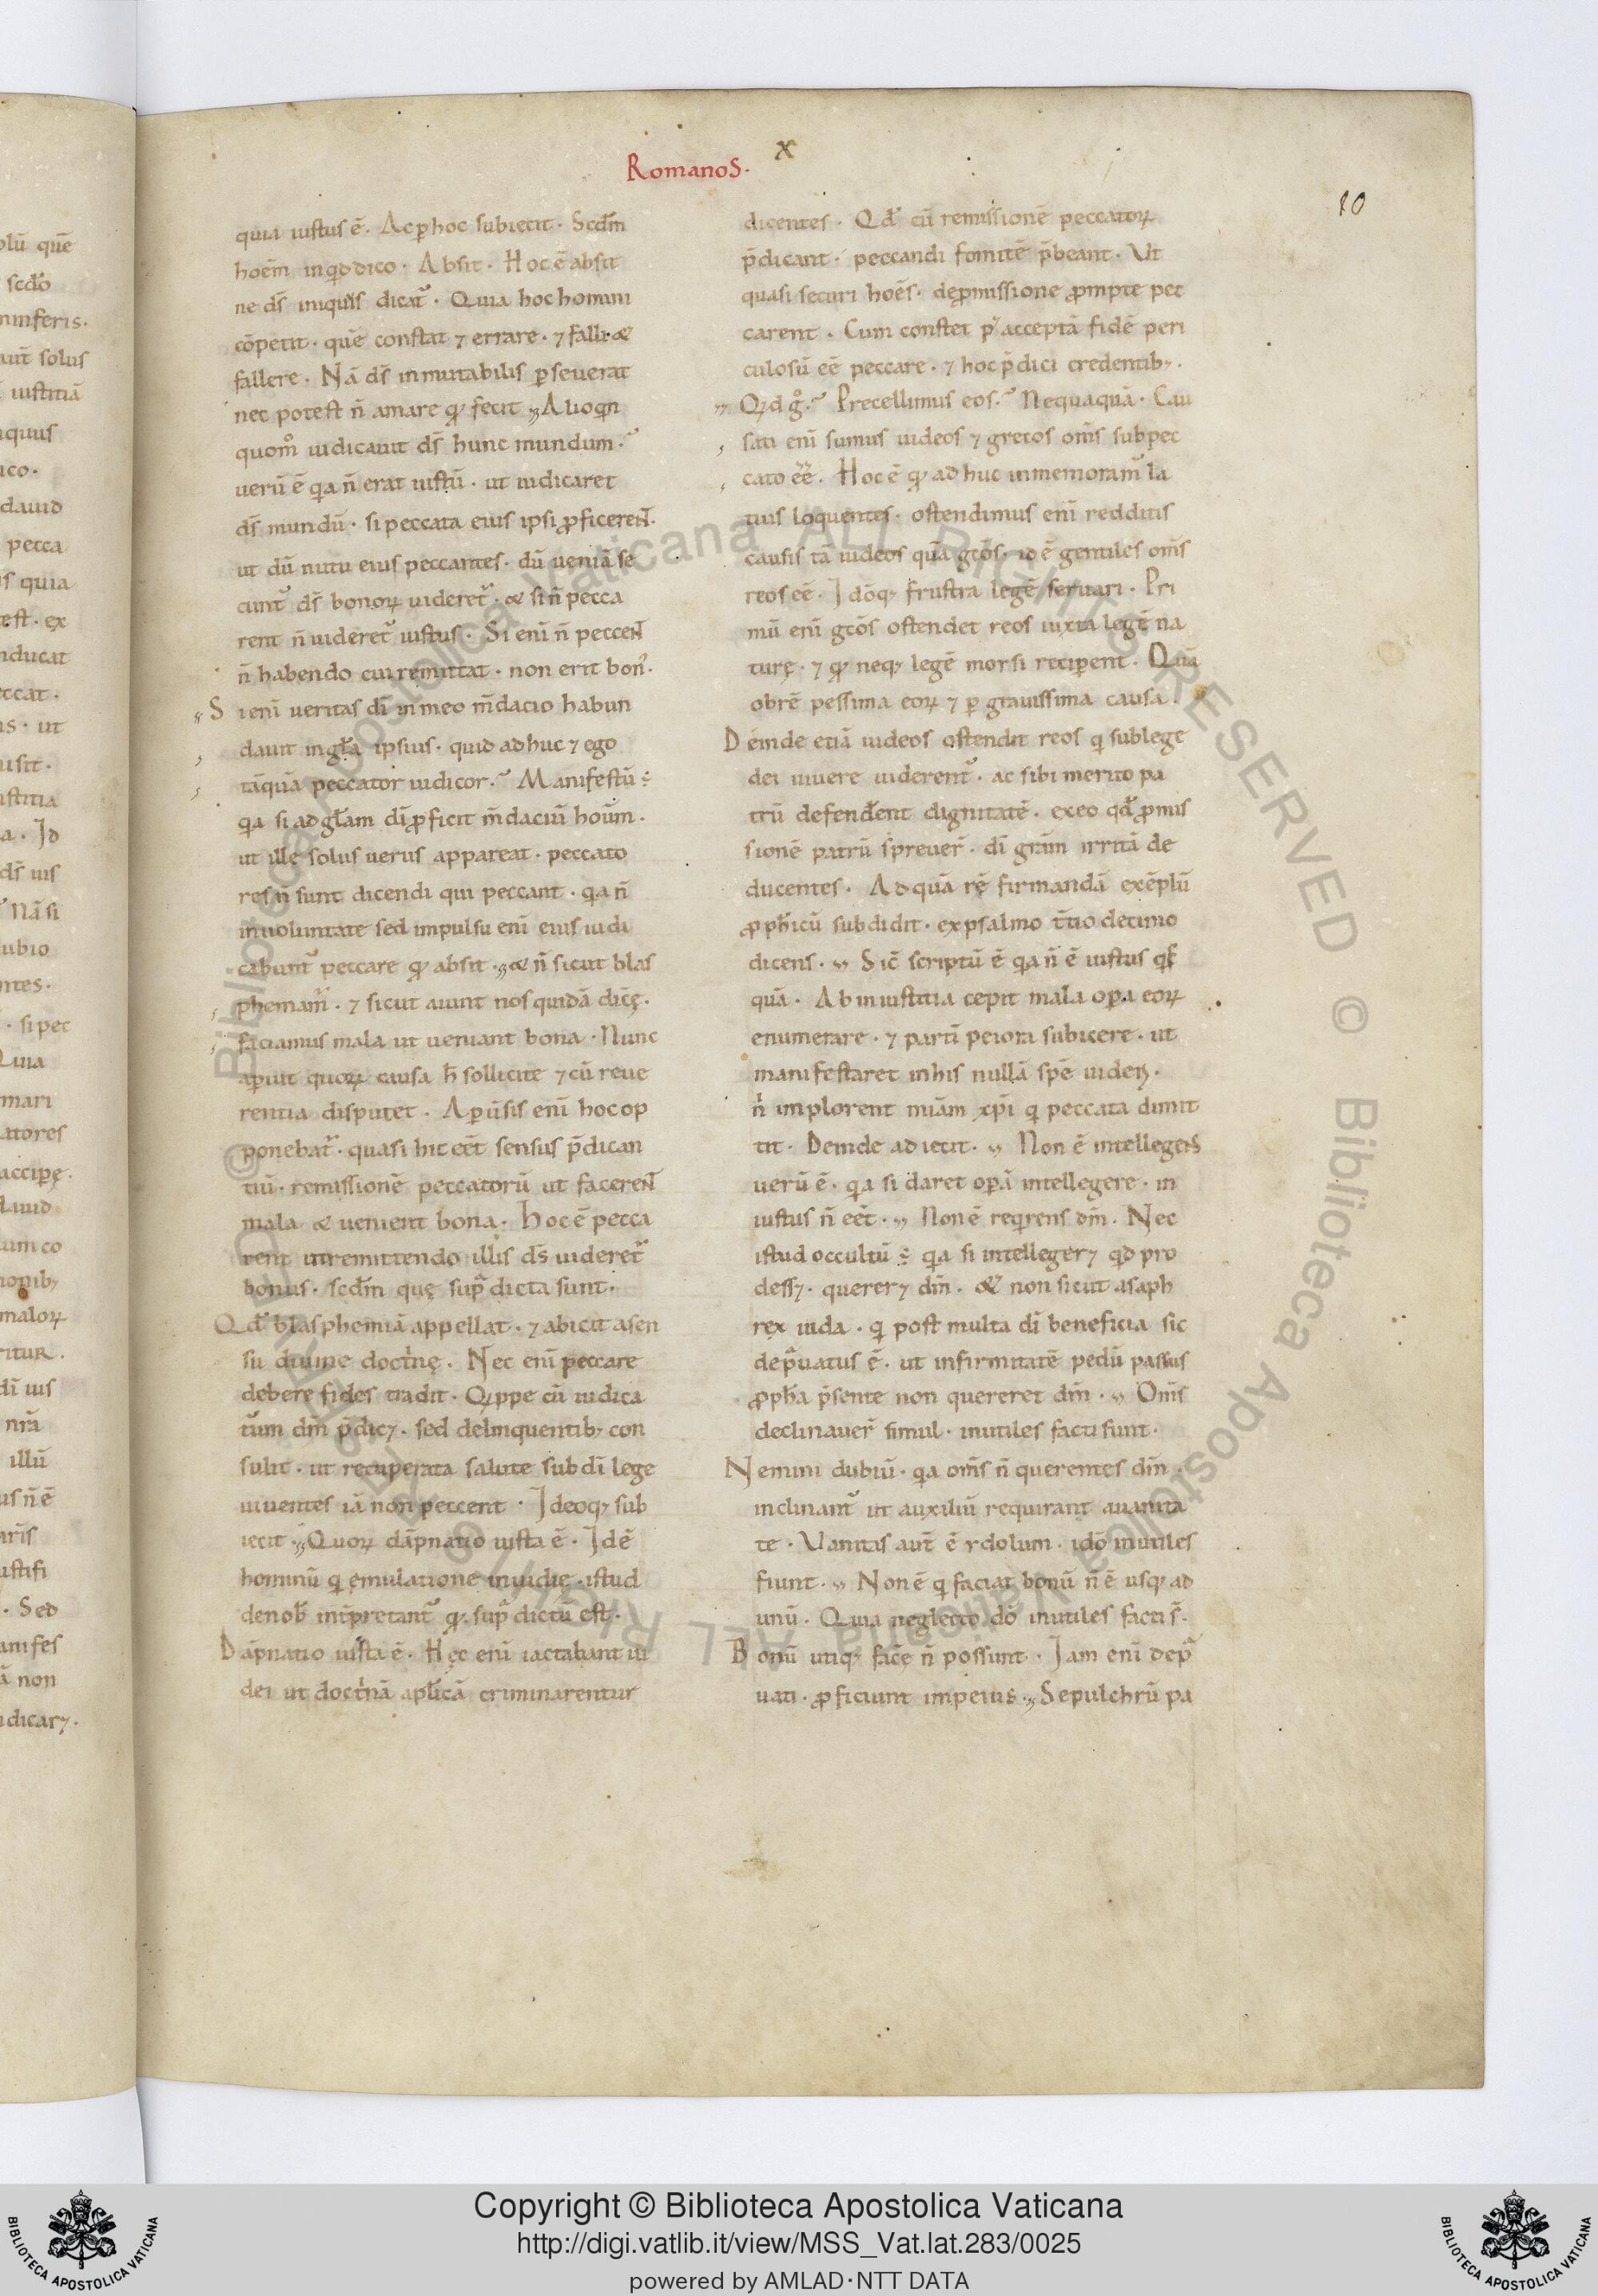 Romanos.
x
10
quia iustus ē. Ac ꝑ hoc subiecit. Scdm̄
hoēm inquid dico. Absit. Hoc ē absit
ne ds̄ iniquus dicat᷑. Quia hoc homini
cōpetit. quē constat ⁊ errare. ⁊ falli. &
fallere. Nā ds̄ inmutabilis ꝑseuerat
nec potest n̄ amare qđ fecit „ Alioqin
quom̊ iudicauit ds̄ hunc mundum.
uerū ē qa n̄ erat iustū. ut iudicaret
ds̄ mundū. si peccata eius ipsi ꝓficerent.
ut dū nutu eius peccantes. dū ueniā se
cunt᷑ ds̄ bonoꝝ uideret᷑. & si n̄ pecca
rent n̄ uideret᷑ iustus. Si enī n̄ peccent
n̄ habendo cui remittat. non erit bon᷒.
Si enī ueritas dī in meo m̄dacio habun
dauit in gl̄a ipsius. quid adhuc ⁊ ego
tāquā peccator iudicor. Manifestū ÷
qa si ad gl̄am dī ꝓficit m̄daciū hoūm.
ut ille solus uerus appareat. peccato
res n̄ sunt dicendi qui peccant. qa n̄
in uoluntate sed impulsu enī eius iudi
cabunt᷑ peccare qđ absit. „ & n̄ sicut blas
phemam᷑. ⁊ sicut aiunt nos quidā dicę.
faciamus mala ut ueniant bona. Nunc
aꝑuit quoꝝ causa h̄ sollicite ⁊ cū reue
rentia disputet. A ꝑuersis enī hoc op
ponebat᷑. quasi hic eēt sensus p̄dican
tiū. remissionē peccatorū ut facerent
mala & uenient bona. Hoc ē pecca
rent ut remittendo illis ds̄ uideret᷑
bonus. scdm̄ quę sup̄ dicta sunt.
Qđ blasphemiā appellat. ⁊ abicit a sen
su diuine doct̄nę. Nec enī peccare
debere fides tradit. Qippe cū iudica
tūm dm̄ p̄dicꝫ. sed delinquentibꝫ con
sulit. ut recuperata salute sub dī lege
uiuentes iā non peccent. Ideoqꝫ sub
iecit. „ Quoꝝ dāpnatio iusta ē. Idē
hominū qi emulatione inuidię. istud
de nob̄ int̄pretant᷑ qđ sup̄ dictū est.
Dāpnatio iusta ē. Hęc enī iactabant iu
dei ut doct̄nā apl̄icā criminarentur
dicentes. Qđ cū remissionē peccatoꝝ
p̄dicant. peccandi fomitē p̄beant. Ut
quasi securi hoēs. de ꝓmissione ꝓmpte pec
carent. Cum constet p᷒ acceptā fidē peri
culosū eē peccare. ⁊ hoc p̄dici credentibꝫ.
„ Qid g̊. Precellimus eos. Nequaquā. Cau
sati enī sumus iudeos ⁊ grecos om̄s sub pec
cato eē. Hoc ē qđ adhuc inmemoram᷑ la
tius loquentes. ostendimus enī redditis
causis tā iudeos quā gcōs. id ē gentiles om̄s
reos eē. Idōqꝫ frustra legē seruari. Pri
mū enī gcōs ostendet reos iuxta legē na
turę. ⁊ qđ neqꝫ legē morsi reciꝑent. Quā
obrē pessima eoꝝ ⁊ ꝑ grauissima causa.
Deinde etiā iudeos ostendit reos qi sub lege
dei uiuere uiderent᷑. ac sibi merito pa
trū defend̄ent dignitatē. ex eo qđ ꝓmis
sionē patrū spreuer̄. dī grām irritā de
ducentes. Ad quā rę firmandā exēplū
ꝓph̄icū subdidit. ex psalmo t̄tio decimo
dicens. „ Sic̄ scriptū ē qa n̄ ē iustus qs
quā. Ab iniustitia cepit mala oꝑa eoꝝ
enumerare. ⁊ partī peiora subicere. ut
manifestaret in his nullā spē uideri.
n̄ implorent mīam xp̄i qi peccata dimit
tit. Deinde adiecit. „ Non ē intellegens
uerū ē. qa si daret oꝑā intellegere. in
iustus n̄ eēt. „ Non ē reqirens dm̄. Nec
istud occultū ÷ qa si intellegerꝫ qđ pro
dessꝫ. quererꝫ dm̄. & non sicut asaph
rex iuda. qi post multa dī beneficia sic
dep̄uatus ē. ut infirmitatē pedū passus
ꝓph̄a p̄sente non quereret dm̄. „ Om̄s
declinauer̄ simul. inutiles facti sunt.
Nemini dubiū. qa om̄s n̄ querentes dm̄.
inclinant᷑ ut auxiliū requirant a uanita
te. Uanitas aut̄ ē ydolum. idō inutiles
fiunt. „ Non ē qi faciat bonū n̄ ē usqꝫ ad
unū. Quia neglecto dō inutiles facti s̄.
Bonū utiqꝫ facē n̄ possunt. Iam enī dep̄
uati. ꝓficiunt in peius. „ Sepulchrū pa
© Biblioteca Apostolica Vaticana ALL RIGHTS RESERVED © Biblioteca Apostolica Vaticana ALL RIGHTS RESERVED
Copyright © Biblioteca Apostolica Vaticana
http://digi.vatlib.it/view/MSS_Vat.lat.283/0025
powered by AMLAD·NTT DATA
BIBLIOTECA APOSTOLICA VATICANA
BIBLIOTECA APOSTOLICA VATICANA